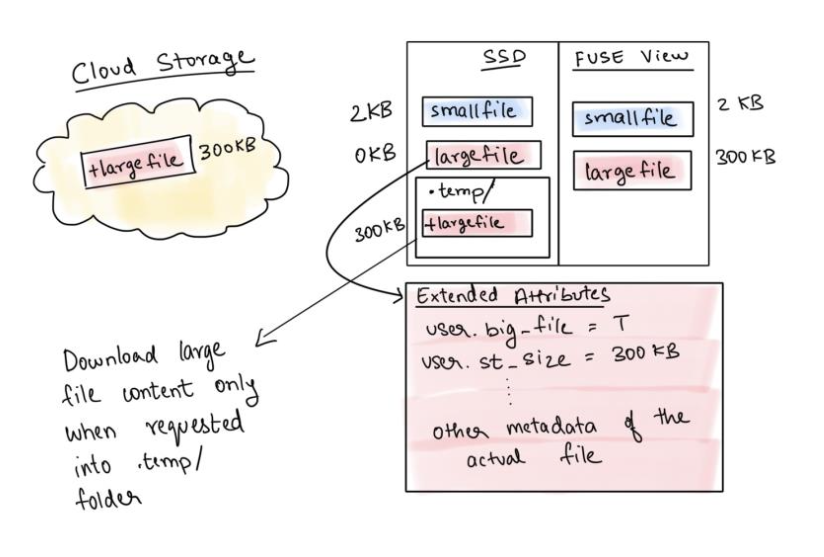 Cloud Storage
+largefile
300KB
SSD
FUSE View
2KB
smallfile
smallfile
2 KB
0KB
largefile
largefile
300KB
.temp/
300KB
+largefile
Extended Attributes
user.big_file = T
user.st_size = 300 KB
other metadata of the
actual file
Download large
file content only
when requested
into .temp/
folder